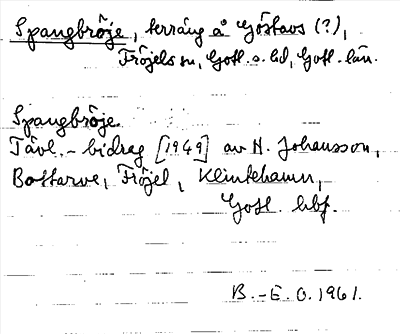 Spangbröje, terräng å Göstavs (?),
Fröjels sn, Gotl. s. hd, Gotl. län.
Spangbröje.
Tävl. - bidrag [1949] av H. Johansson,
Bottarve, Fröjel, Klintehamn,
Gotl. hbf.
B. - E. O. 1961.